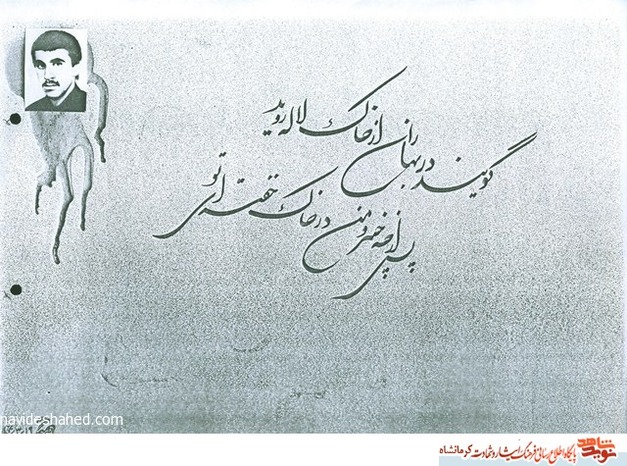 گویند در بهاران از خاک لاله روید
پس از چه خسرو من در خاک خفته ای تو
navideshahed.com
نوید شاهد پایگاه اطلاع رسانی فرهنگ ایثار و شهادت کرمانشاه